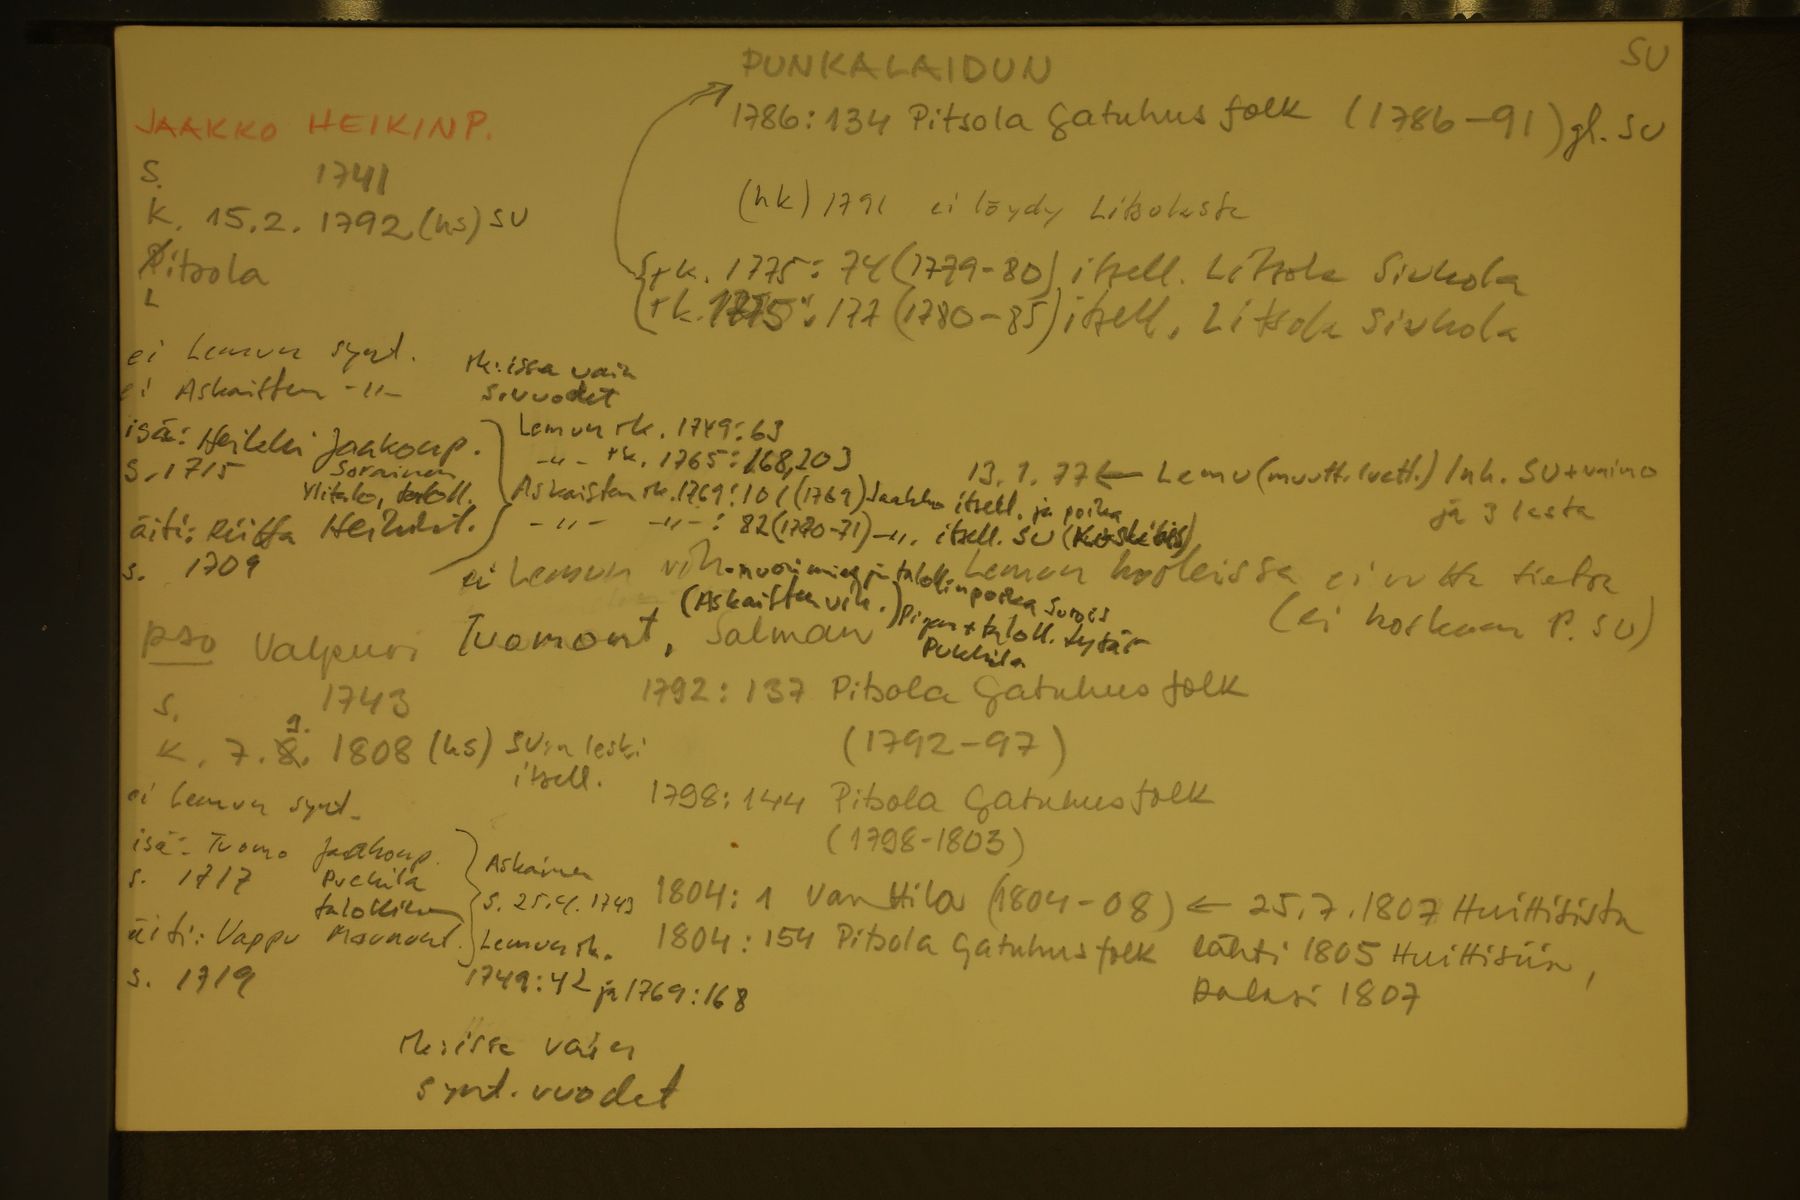 PUNKALAIDUN
SU
JAAKKO HEIKINP.
1786: 134 Pitsola Gatuhusfolk (1786-91) gl. SU
s. 1741
k. 15.2. 1792 (hs) SU
(hk) 1791 ei löydy Litsolasta
Pitsola
L
rk. 1775: 74 (1779-80) itsell. Litsola Siukola
rk. 1775: 177 (1780-85) itsell. Litsola Siukola
ei Lemun synt.
ei Askaisten -"-
rk:issa vain
s.vuodet
isä: Heikki Jaakonp.
s. 1715 Sorainen
Ylitalo, taloll.
äiti: Riitta Heikint.
s. 1709
Lemun rk. 1749: 63
-"- rk. 1765: 168, 203
Askaisten rk. 1769: 101 (1769) Jaakko itsell. ja poika
-"- -"-: 82 (1770-71) -"- itsell. SU
13.1.77 ← Lemu (muutt. luett.) Inh. SU + vaimo
ja 3 lasta
ei Lemun vih. - nuori mies ja talollinpoika
(Askaisten vih.) Pigan + taloll. tytär
Pukkila
Lemun kuolleissa ei uutta tietoa
(ei koskaan P. SU)
pso Valpuri Tuomont. Salman
s. 1743
k. 7.8. 9. 1808 (hs) SU:n leski
itsell.
1792: 137 Pitsola Gatuhusfolk
(1792-97)
1798: 144 Pitsola Gatuhusfolk
(1798-1803)
ei Lemun synt.
isä: Tuomo Jaakonp.
s. 1717 Puckila
talollinen
äiti: Vappu Maununt.
s. 1719
Askainen
s. 25.4. 1743
Lemun rk.
1749: 42 ja 1769: 168
1804: 1 Vanttila (1804-08) ← 25.7.1807 Huittisista
1804: 154 Pitsola Gatuhusfolk lähti 1805 Huittisiin,
palasi 1807
rk:issa vain
synt. vuodet